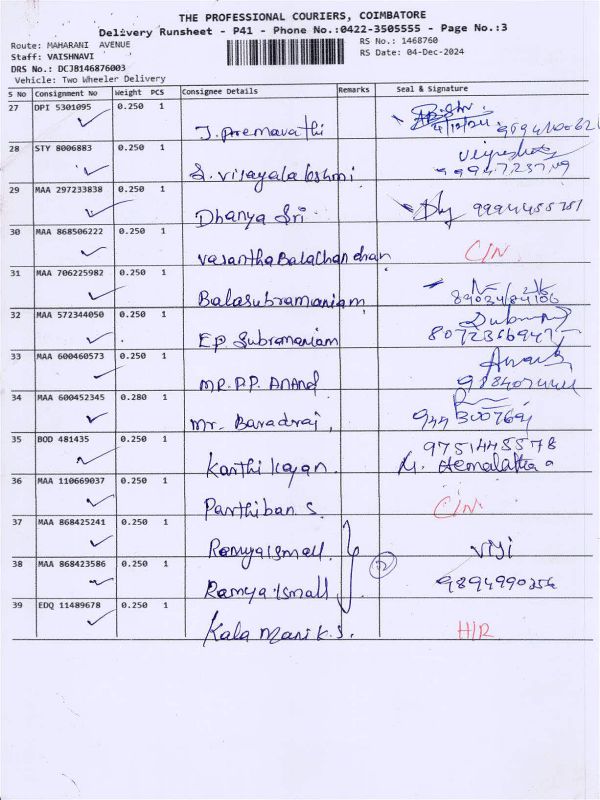 THE PROFESSIONAL COURIERS, COIMBATORE
Delivery Runsheet - P41 - Phone No.:0422-3505555 - Page No.:3
Route: MAHARANI AVENUE
RS No.: 1468760
Staff: VAISHNAVI
RS Date: 04-Dec-2024
DRS No.: DCJB146876003
Vehicle: Two Wheeler Delivery
S No Consignment No Weight PCS Consignee Details Remarks Seal & Signature
27 DPI 5301095 0.250 1
J. Premavathi 4/12/24
28 STY 8006883 0.250 1
S. Vijayalakshmi
29 MAA 297233838 0.250 1
Dhanya Sri
30 MAA 868506222 0.250 1
Vasantha Balachandran C/N.
31 MAA 706225982 0.250 1
Balasubramaniam
32 MAA 572344050 0.250 1
E.P. Subramaniam
33 MAA 600460573 0.250 1
MR. P.P. ANAND
34 MAA 600452345 0.280 1
Mr. Baradraj,
35 BOD 481435 0.250 1 9751445578
Karthikayan. M. Hemalatha
36 MAA 110669037 0.250 1
Parthiban S. C/N.
37 MAA 868425241 0.250 1
Ramya Ismall Viji
38 MAA 868423586 0.250 1 2
Ramya Ismall 9894990256
39 EDQ 11489678 0.250 1
Kala Mani K.S. H/R